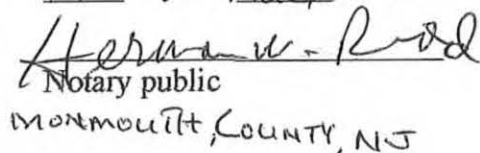 Herman W. Rood
Notary public
MONMOUTH, COUNTY, NJ